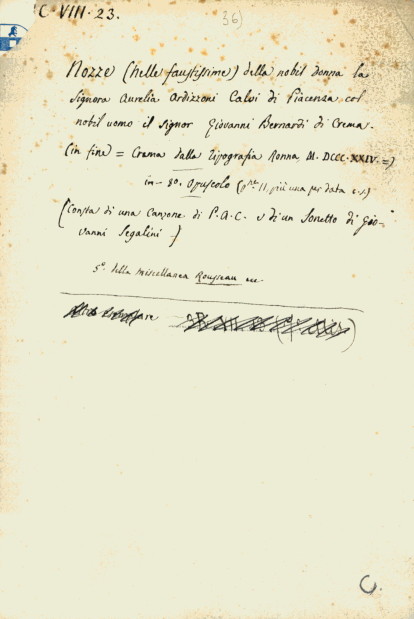 C VIII. 23.
36)
Nozze (nelle faustissime) della nobil donna la
Signora Aurelia Ardizzoni Calvi di Piacenza col
nobil uomo il Signor Giovanni Bernardi di Crema.
(in fine) = Crema dalla Tipografia Ronna M. DCCC. XXIV. =)
in-8º. Opuscolo (p. 11, più una per data
(Consta di una Canzone di P. A. C. e di un Sonetto di Gio-
vanni Segalini –)
5º della miscellanea Rousseau
C.